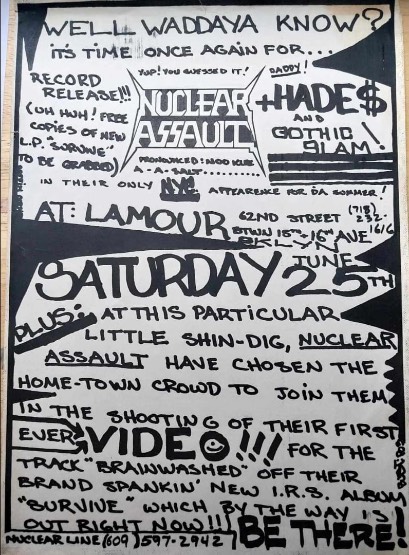 WELL WADDAYA KNOW?
IT'S TIME ONCE AGAIN FOR...
YUP! YOU GUESSED IT!
DADDY!
RECORD
RELEASE!!!
(UH HUH! FREE
COPIES OF NEW
L.P. "SURVIVE"
TO BE GRABBED)
NUCLEAR
ASSAULT
PRONOUNCED: NOO KLEE
A-A-SALT.....
+HADE$
AND
GOTHIC
SLAM!
IN THEIR ONLY NYC APPEARENCE FOR DA SUMMER!
AT: LAMOUR
62ND STREET
BTWN 15TH-16TH AVE
BKLYN
(718)
232-
1616
JUNE
SATURDAY 25TH
PLUS: AT THIS PARTICULAR
LITTLE SHIN-DIG, NUCLEAR
ASSAULT HAVE CHOSEN THE
HOME-TOWN CROWD TO JOIN THEM
IN THE SHOOTING OF THEIR FIRST
EVER VIDEO!!! FOR THE
TRACK "BRAINWASHED" OFF THEIR
BRAND SPANKIN' NEW I.R.S. ALBUM
"SURVIVE" WHICH BY THE WAY IS
OUT RIGHT NOW!!!
BE THERE!
NUCLEAR LINE (609) 597-2942